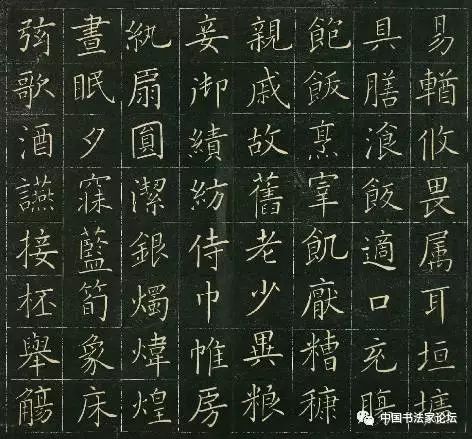 易輶攸畏属耳垣墻
具膳飡飯適口充膓
飽飫烹宰飢厭糟糠
親戚故舊老少異粮
妾御績紡侍巾帷房
紈扇圓潔銀燭煒煌
晝眠夕寐藍筍象床
弦歌酒讌接杯舉觴
中国书法家论坛